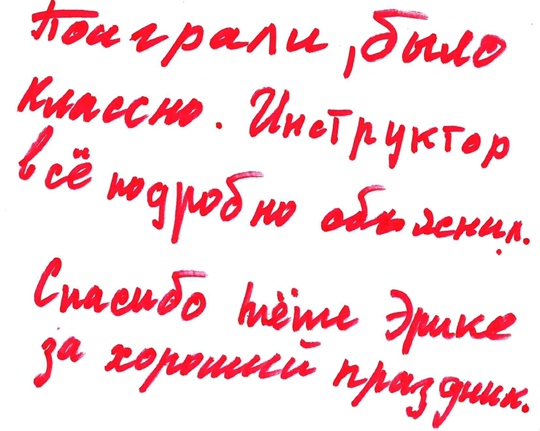 Поиграли, было
классно. Инструктор
всё подробно объяснил.
Спасибо тёте Эрике
за хороший праздник.